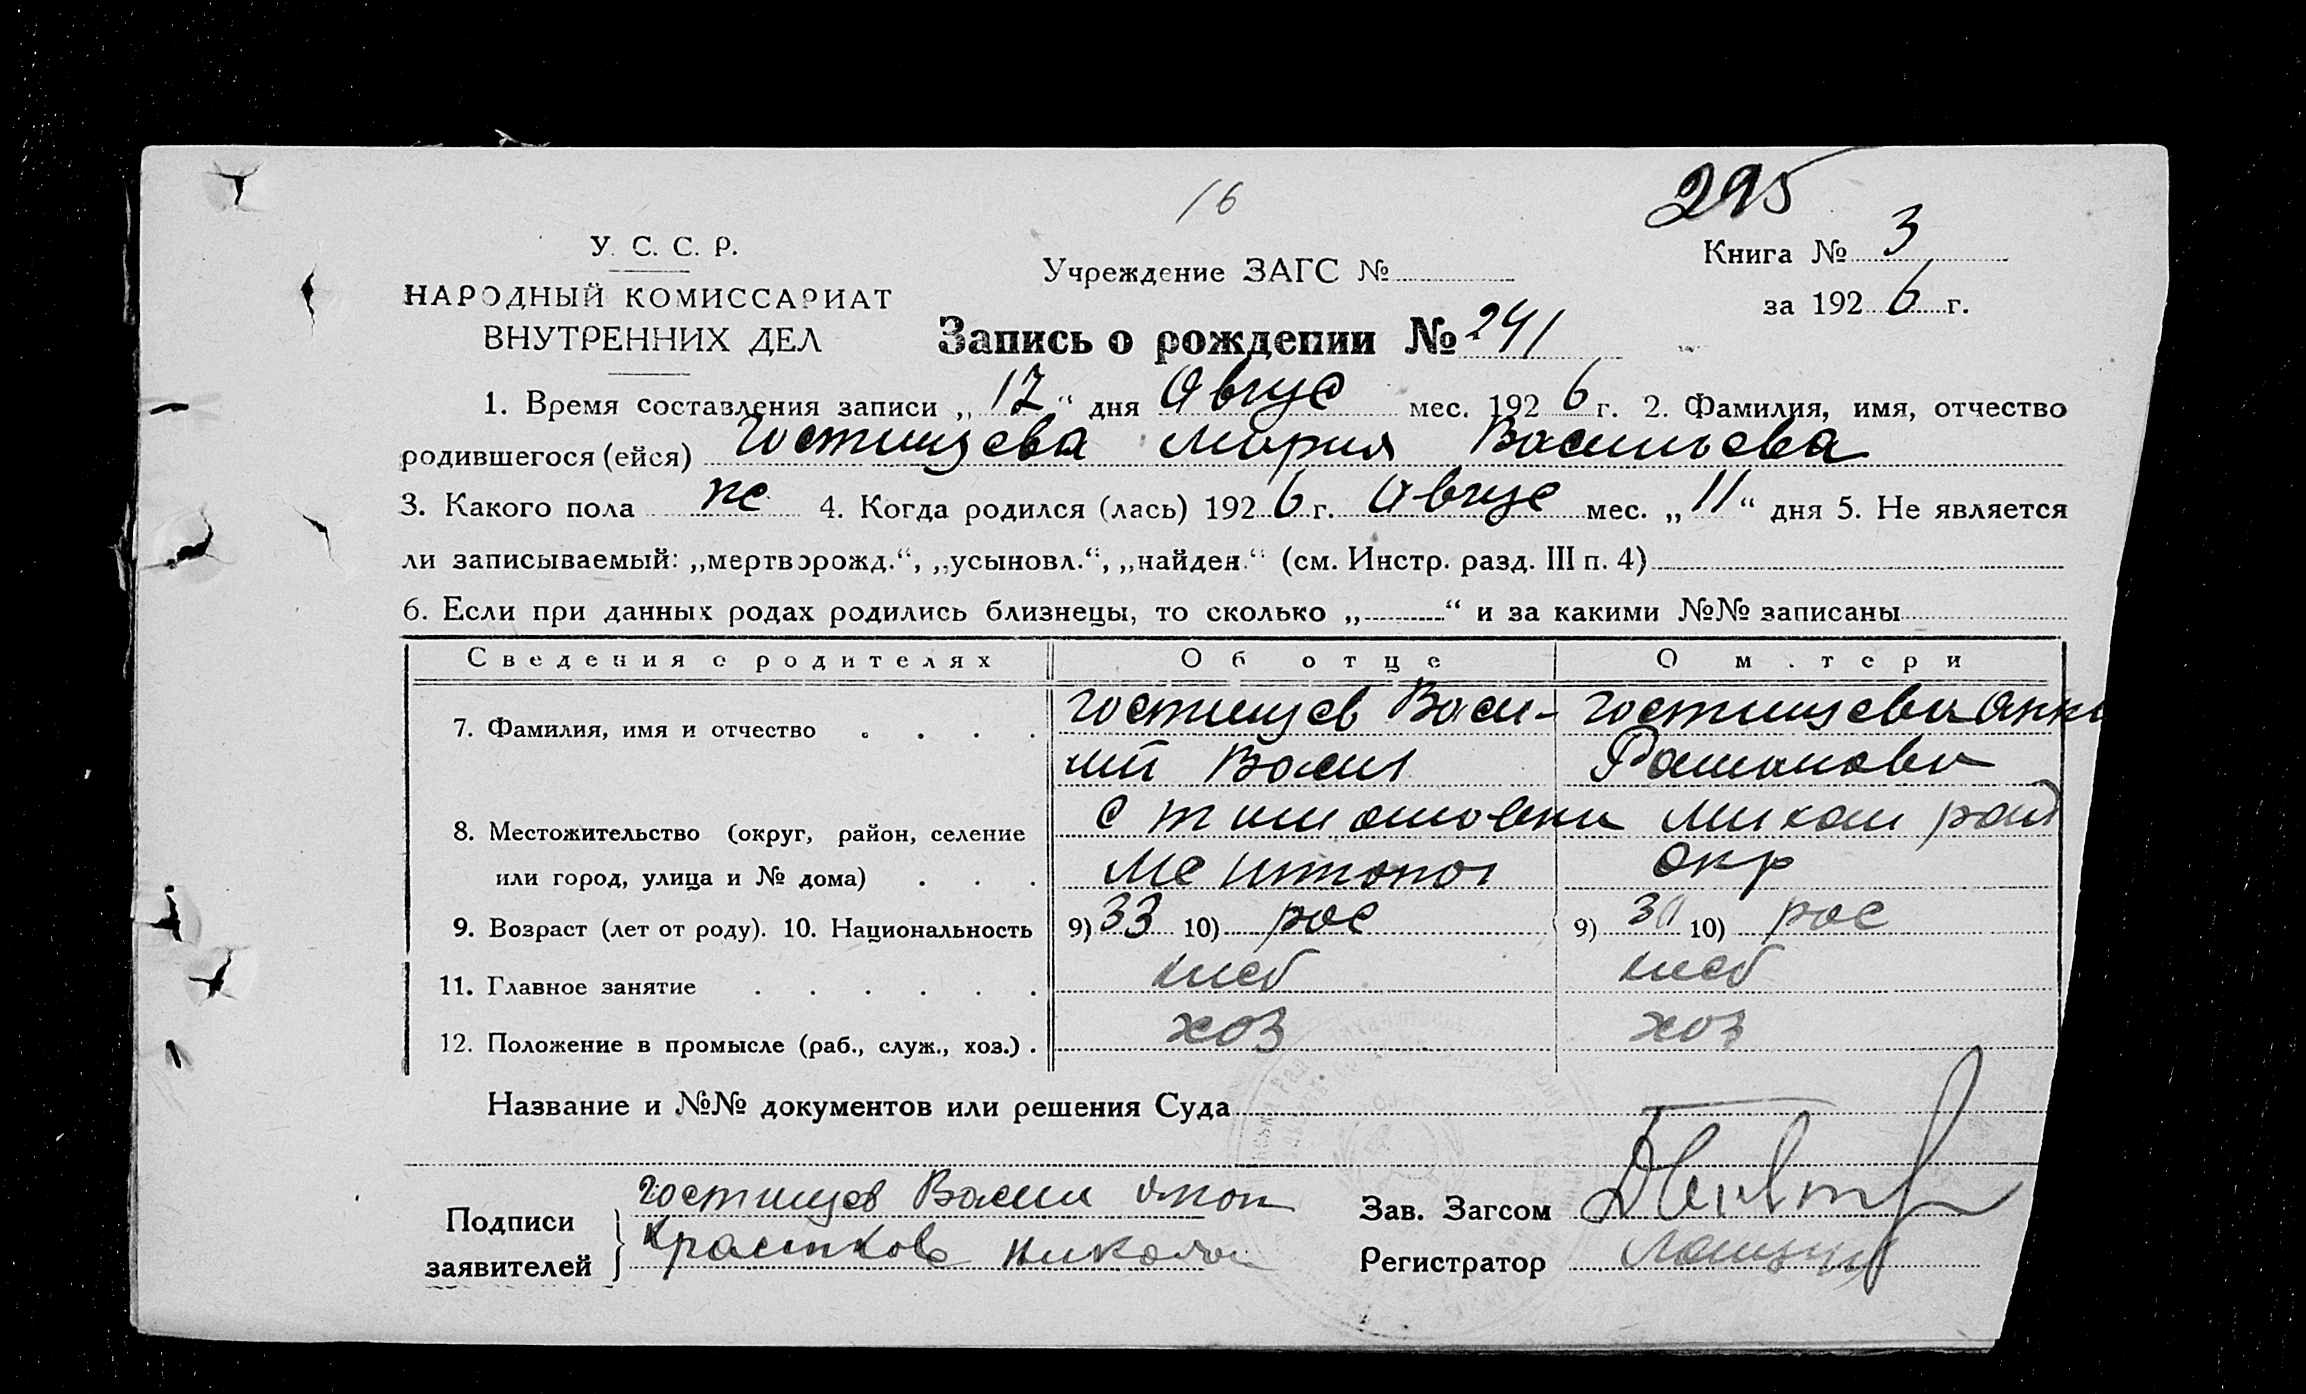 16
295
У. С. С. Р.
НАРОДНЫЙ КОМИССАРИАТ
ВНУТРЕННИХ ДЕЛ
Учреждение ЗАГС №
Книга № 3
за 1926 г.
Запись о рождении № 241
1. Время составления записи „12“ дня Авгус мес. 1926 г. 2. Фамилия, имя, отчество
родившегося (ейся) Гостищева Мария Васильева
3. Какого пола же 4. Когда родился (лась) 1926 г. Авгус мес. „11“ дня 5. Не является
ли записываемый: „мертворожд.“, „усыновл.“, „найден.“ (см. Инстр. разд. III п. 4)
6. Если при данных родах родились близнецы, то сколько „ “ и за какими №№ записаны
Сведения о родителях Об отце О матери
7. Фамилия, имя и отчество Гостищев Васи- Гостищева Анна
лий Васил
8. Местожительство (округ, район, селение с Тимошовки Михай рай
или город, улица и № дома) Мелитопол окр
9. Возраст (лет от роду). 10. Национальность 9) 33 10) рос 9) 30 10) рос
11. Главное занятие хлеб хлеб
12. Положение в промысле (раб., служ., хоз.) хоз хоз
Название и №№ документов или решения Суда
Подписи заявителей Гостищев Васил
Николай
Зав. Загсом
Регистратор